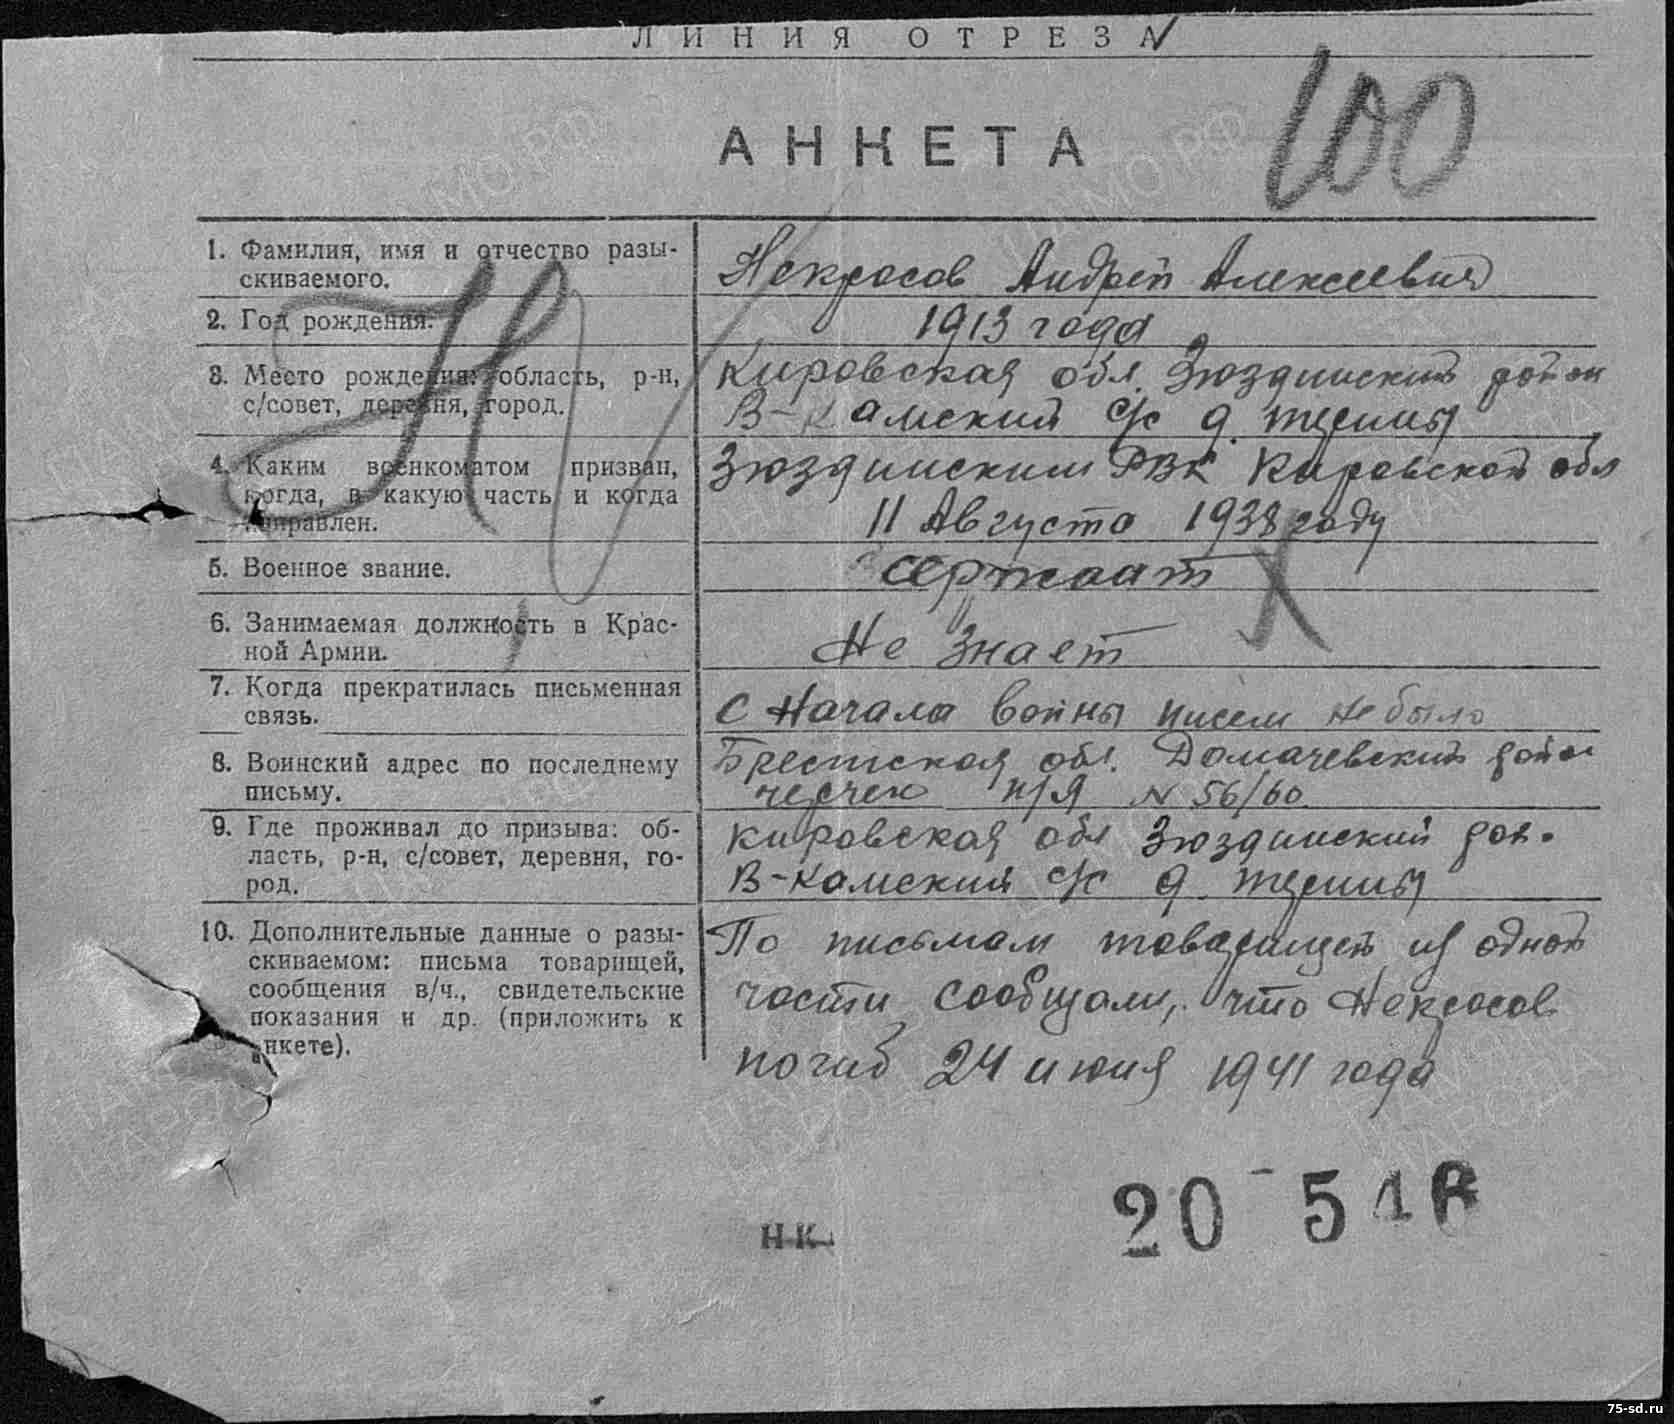 ЛИНИЯ ОТРЕЗА
100
АНКЕТА
1. Фамилия, имя и отчество разы-
скиваемого.
Некрасов Андрей Алексеевич
2. Год рождения.
1913 года
3. Место рождения: область, р-н,
с/совет, деревня, город.
Кировская обл. Зюздинский район
В-Камский с/с д.
4. Каким военкоматом призван,
когда, в какую часть и когда
направлен.
Зюздинским РВК Кировской обл
11 Августа 1938 году
5. Военное звание.
сержант
6. Занимаемая должность в Крас-
ной Армии.
Не знает
7. Когда прекратилась письменная
связь.
с Начала войны писем не было
8. Воинский адрес по последнему
письму.
Брестская обл. Домачевский район
п/я N 56/60
9. Где проживал до призыва: об-
ласть, р-н, с/совет, деревня, го-
род.
Кировская обл Зюздинский рай.
В-Камский с/с д.
10. Дополнительные данные о разы-
скиваемом: письма товарищей,
сообщения в/ч., свидетельские
показания и др. (приложить к
анкете).
По письмам товарищей из одной
части сообщали, что Некрасов
погиб 24 июня 1941 года
20 - 5
НК
75-sd.ru